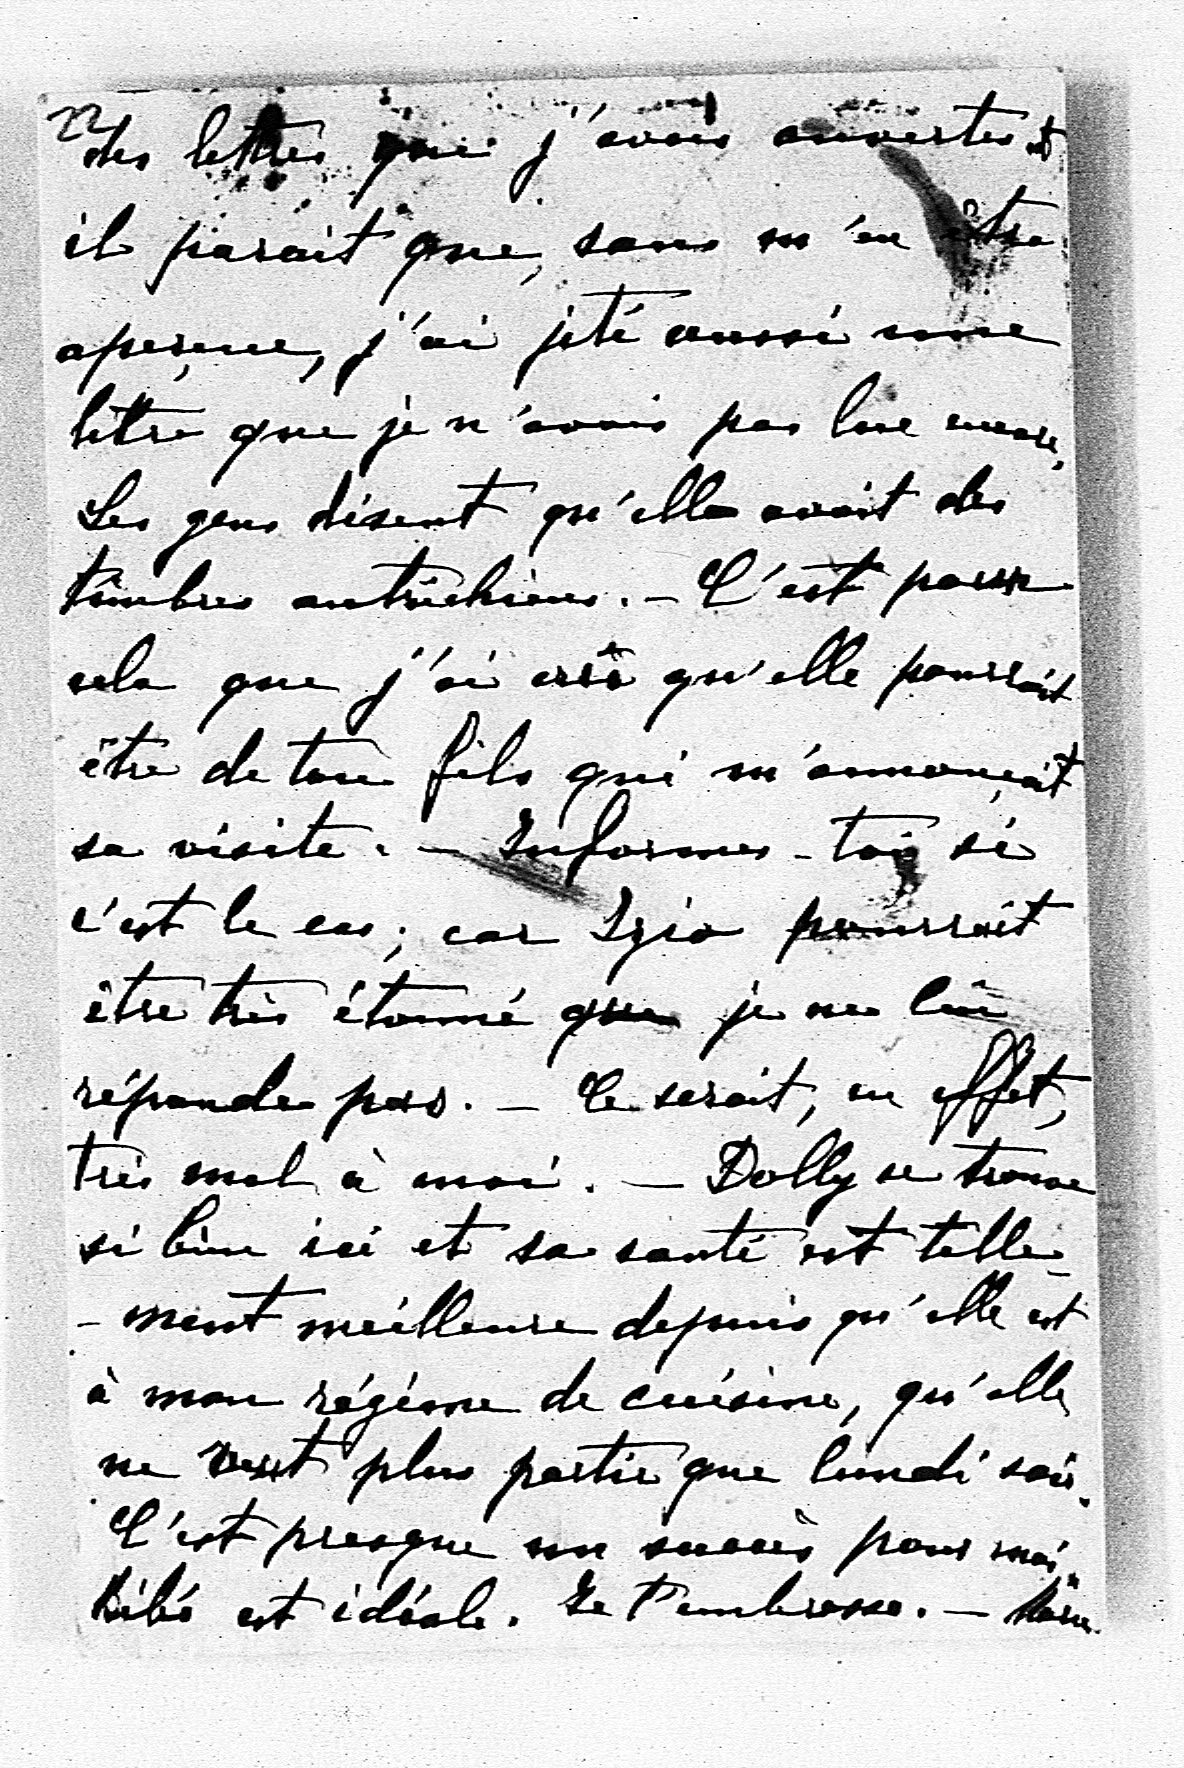 22
des lettres que j'avais ouvertes et
il parait que, sans m'en être
aperçue, j'ai jeté aussi une
lettre que je n'avais pas lue encore.
Les gens disent qu'elle avait des
timbres autrichiens. — C'est pour
cela que j'ai crû qu'elle pourrait
être de ton fils qui m'annonçait
sa visite. — Informes-toi si
c'est le cas; car Izio pourrait
être très étonné que je ne lui
réponde pas. — Ce serait, en effet,
très mal à moi. — Dolly se trouve
si bien ici et sa santé est telle-
-ment meilleure depuis qu'elle est
à mon régime de cuisine, qu'elle
ne veut plus partir que lundi soir.
C'est presque un succès pour moi.
Bébé est idéale. Je t'embrasse. —